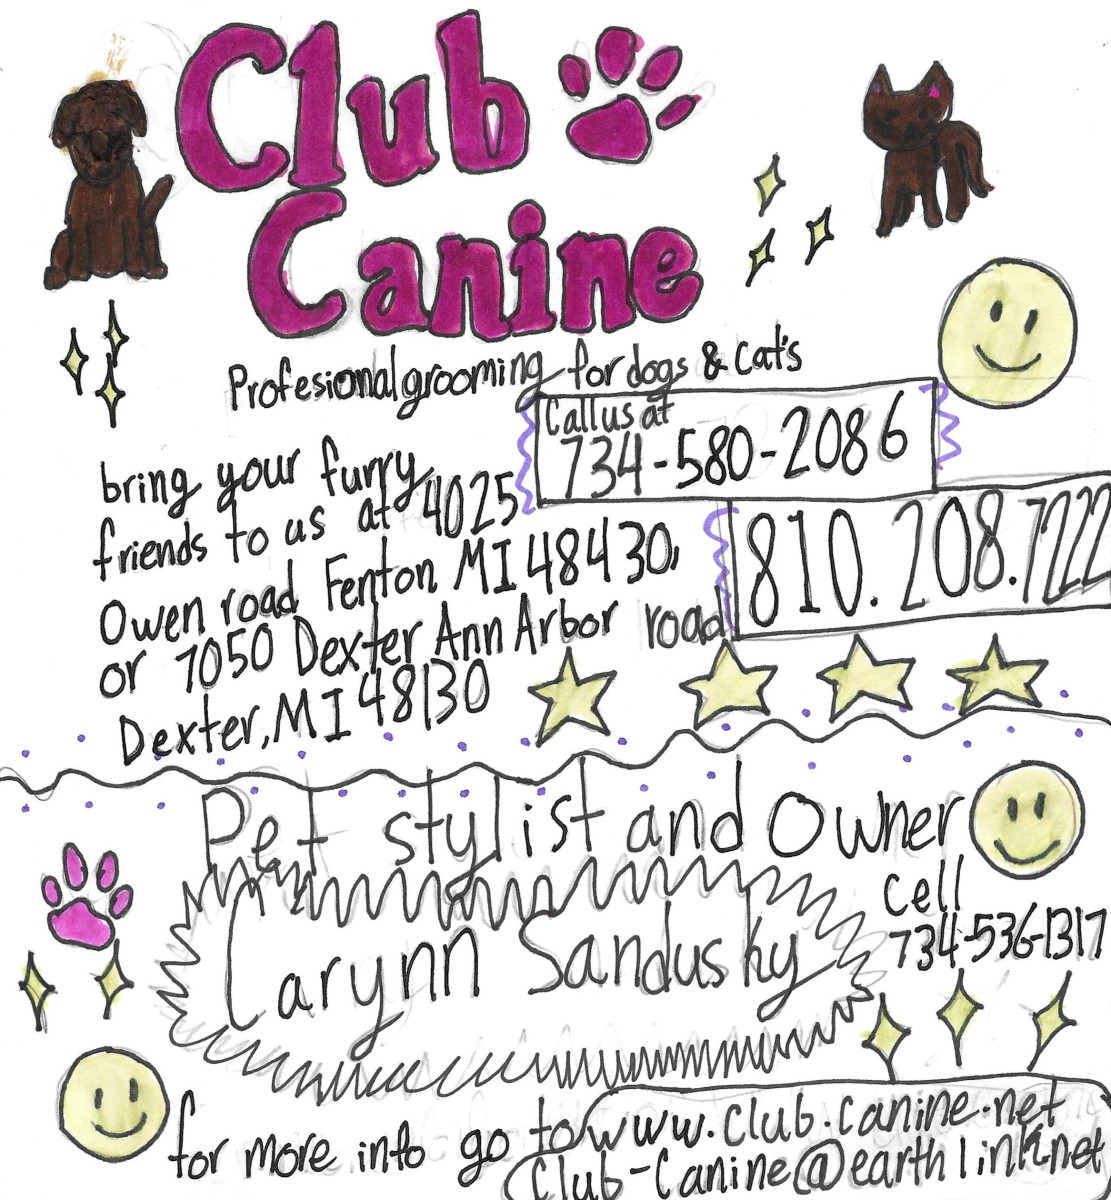 Club
Canine
Profesional grooming for dogs & cat's
Call us at
734-580-2086
810.208.7222
bring your furry
friends to us at 4025
Owen road Fenton MI 48430,
or 7050 Dexter Ann Arbor road
Dexter, MI 48130
Pet stylist and Owner
Carynn Sandusky
cell
734-536-1317
for more info go to www.club.canine.net
Club-Canine@earthlink.net